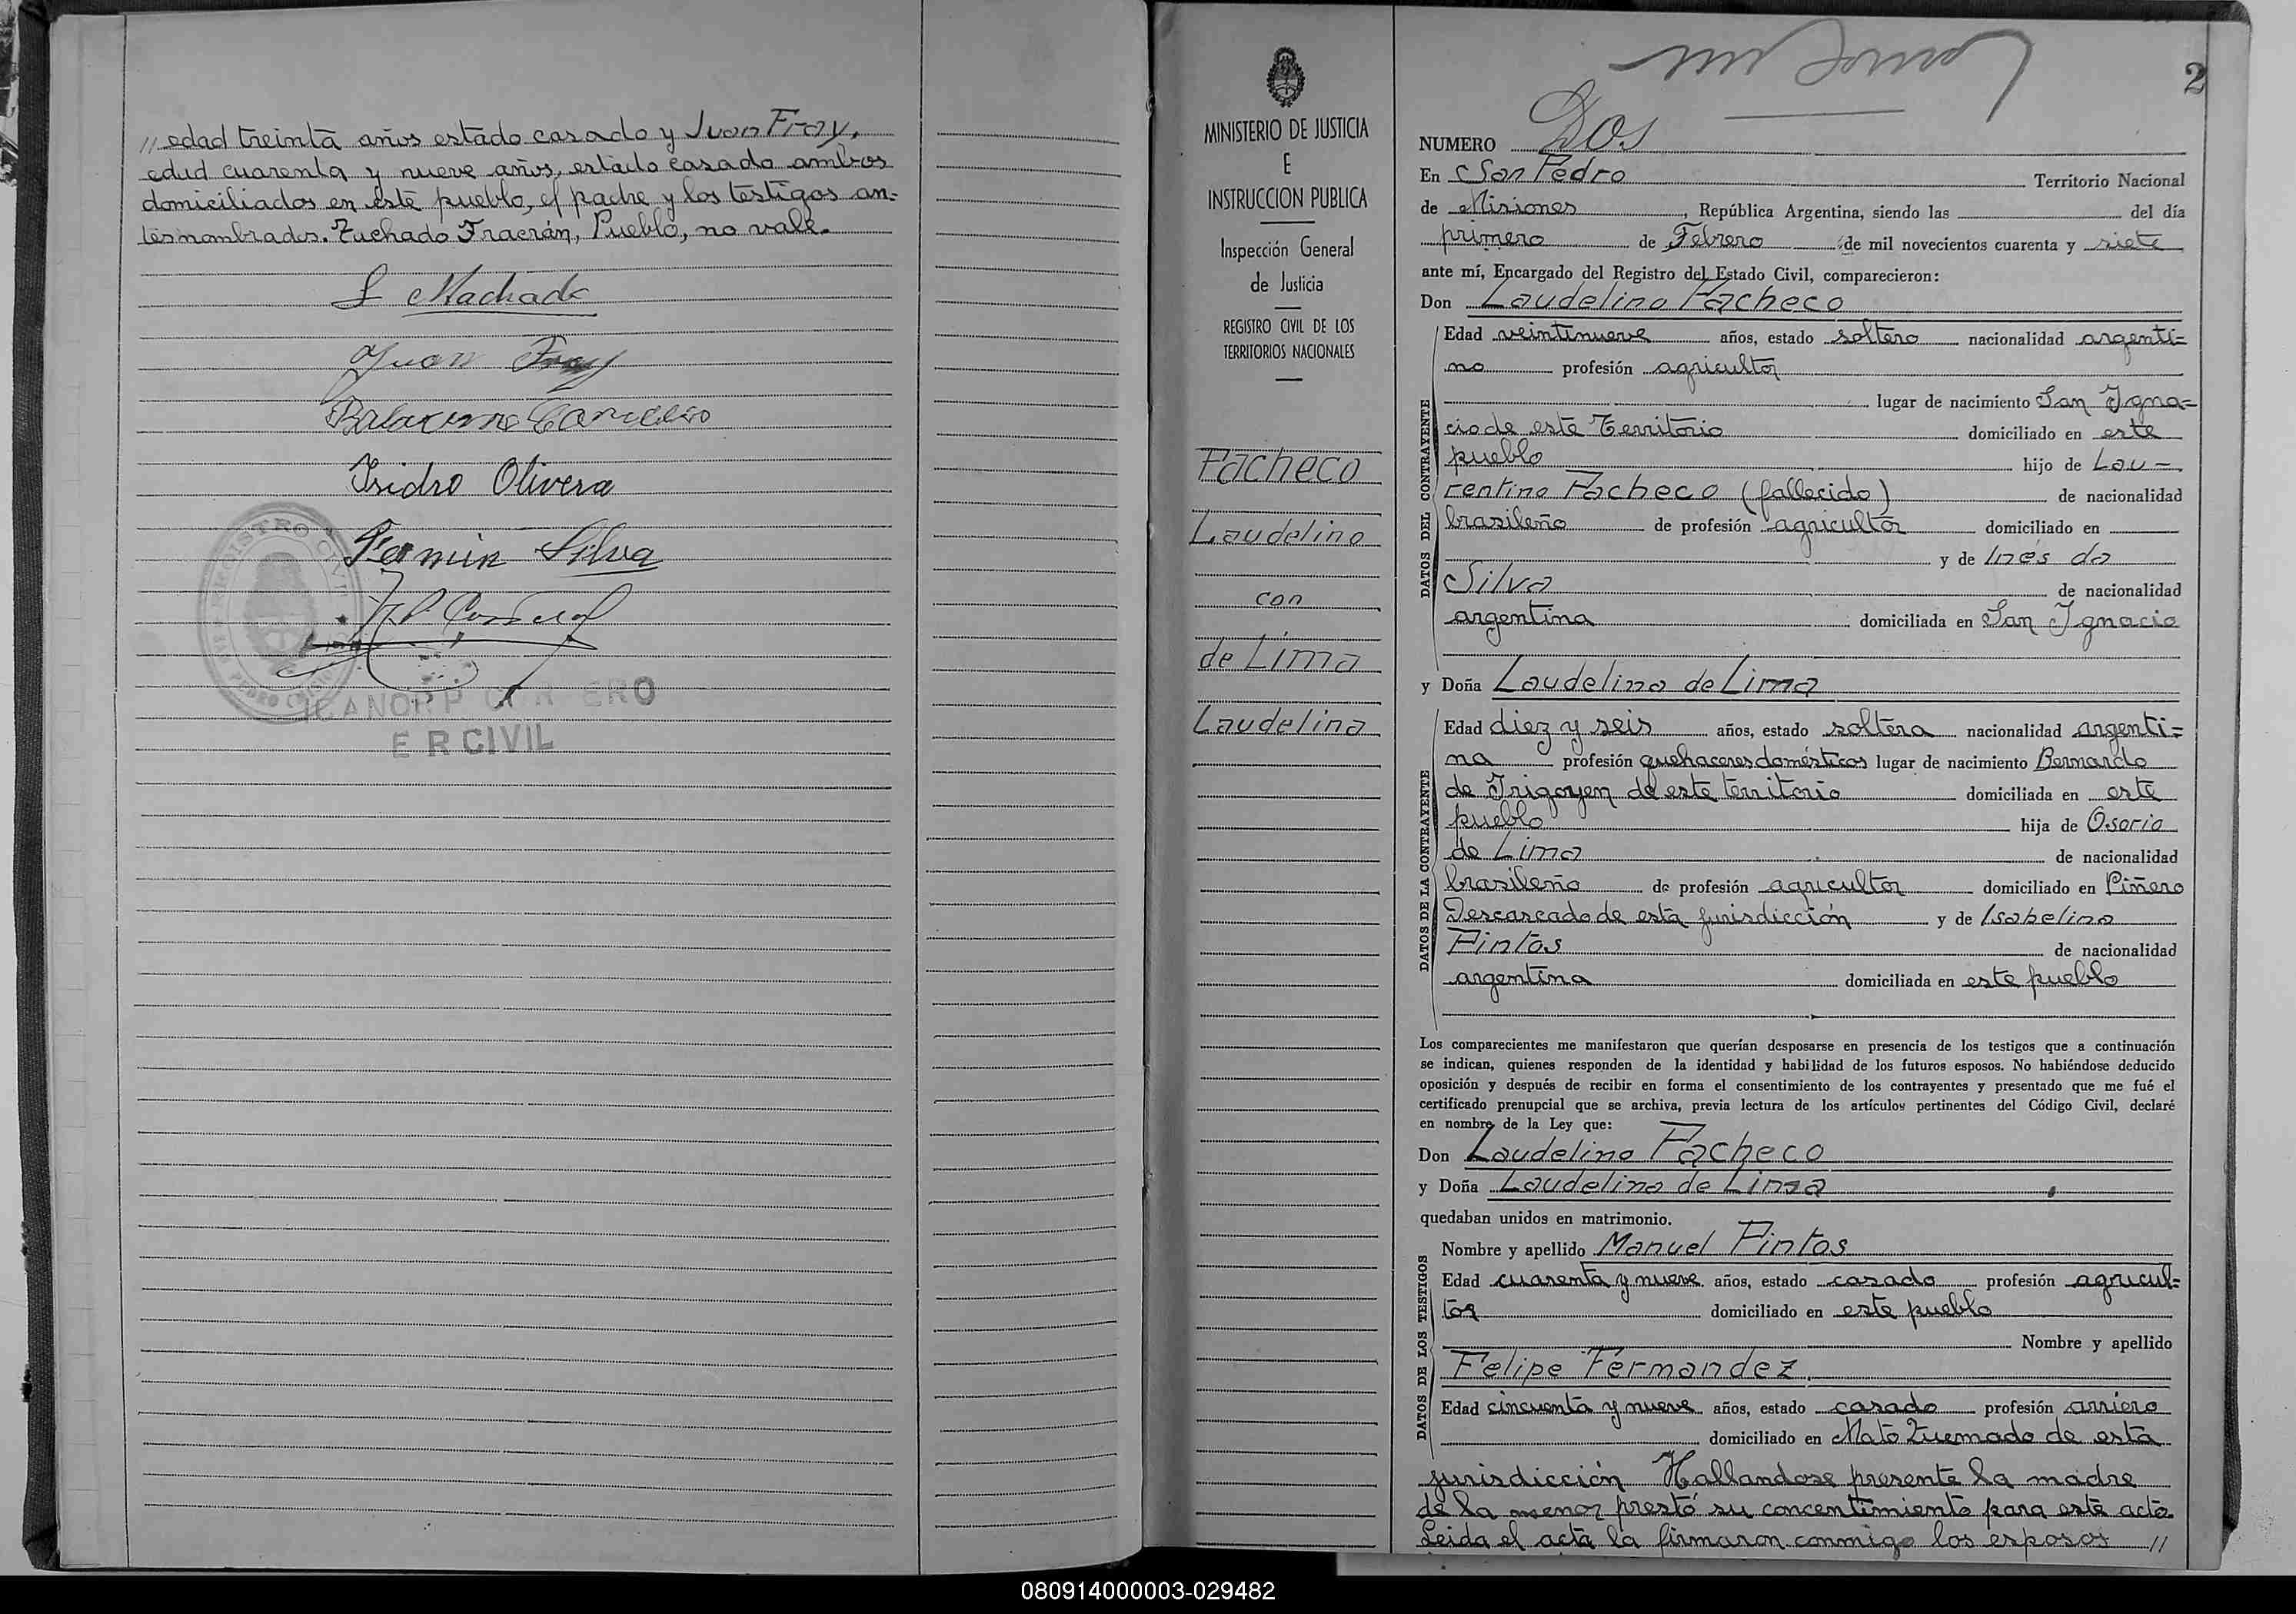 // edad treinta años estado casado y Juan Fray,
edad cuarenta y nueve años, estado casado ambos
domiciliados en este pueblo, el padre y los testigos an-
tes nombrados. Tuchado Fracrán, Pueblo, no vale.
L Machado
Juan Fray
Isidro Olivera
Fermin Silva
REGISTRO CIVIL
ER CIVIL
MINISTERIO DE JUSTICIA
E
INSTRUCCION PUBLICA
Inspección General
de Justicia
REGISTRO CIVIL DE LOS
TERRITORIOS NACIONALES
Pacheco
Laudelino
con
de Lima
Laudelina
2
NUMERO Dos
En San Pedro Territorio Nacional
de Misiones, República Argentina, siendo las del día
primero de Febrero de mil novecientos cuarenta y siete
ante mí, Encargado del Registro del Estado Civil, comparecieron:
Don Laudelino Pacheco
DATOS DEL CONTRAYENTE
Edad veintinueve años, estado soltero nacionalidad argenti=
no profesión agricultor
lugar de nacimiento San Igna=
cio de este Territorio domiciliado en este
pueblo hijo de Lau-
rentino Pacheco (fallecido) de nacionalidad
brasileño de profesión agricultor domiciliado en
y de Inés da
Silva de nacionalidad
argentina domiciliada en San Ignacio
y Doña Laudelina de Lima
DATOS DE LA CONTRAYENTE
Edad diez y seis años, estado soltera nacionalidad argenti=
na profesión quehaceres domésticos lugar de nacimiento Bernardo
de Irigoyen de este territorio domiciliada en este
pueblo hija de Osorio
de Lima de nacionalidad
brasileño de profesión agricultor domiciliado en Piñero
Descascado de esta jurisdicción y de Isabelina
Pintos de nacionalidad
argentina domiciliada en este pueblo
Los comparecientes me manifestaron que querían desposarse en presencia de los testigos que a continuación
se indican, quienes responden de la identidad y habilidad de los futuros esposos. No habiéndose deducido
oposición y después de recibir en forma el consentimiento de los contrayentes y presentado que me fué el
certificado prenupcial que se archiva, previa lectura de los artículos pertinentes del Código Civil, declaré
en nombre de la Ley que:
Don Laudelino Pacheco
y Doña Laudelina de Lima
quedaban unidos en matrimonio.
DATOS DE LOS TESTIGOS
Nombre y apellido Manuel Pintos
Edad cuarenta y nueve años, estado casado profesión agricul=
tor domiciliado en este pueblo
Nombre y apellido
Felipe Fernandez
Edad cincuenta y nueve años, estado casado profesión arriero
domiciliado en Mato Quemado de esta
jurisdicción Hallandose presente la madre
de la menor prestó su concentimiento para este acto.
Leida el acta la firmaron conmigo los esposos //
080914000003-029482